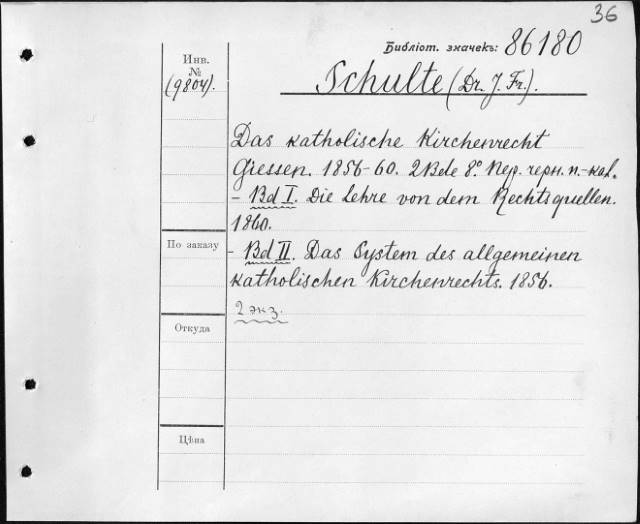 36
Библіот. значекъ: 86180
Инв.
№
(9804).
Schulte (Dr. J. Fr.).
Das katholische Kirchenrecht
Giessen. 1856-60. 2 Bde 8º Пер. черн. п.-кал.
- Bd I. Die Lehre von dem Rechtsquellen.
1860.
По заказу
- Bd II. Das System des allgemeinen
katholischen Kirchenrechts. 1856.
2 экз.
Откуда
Цѣна